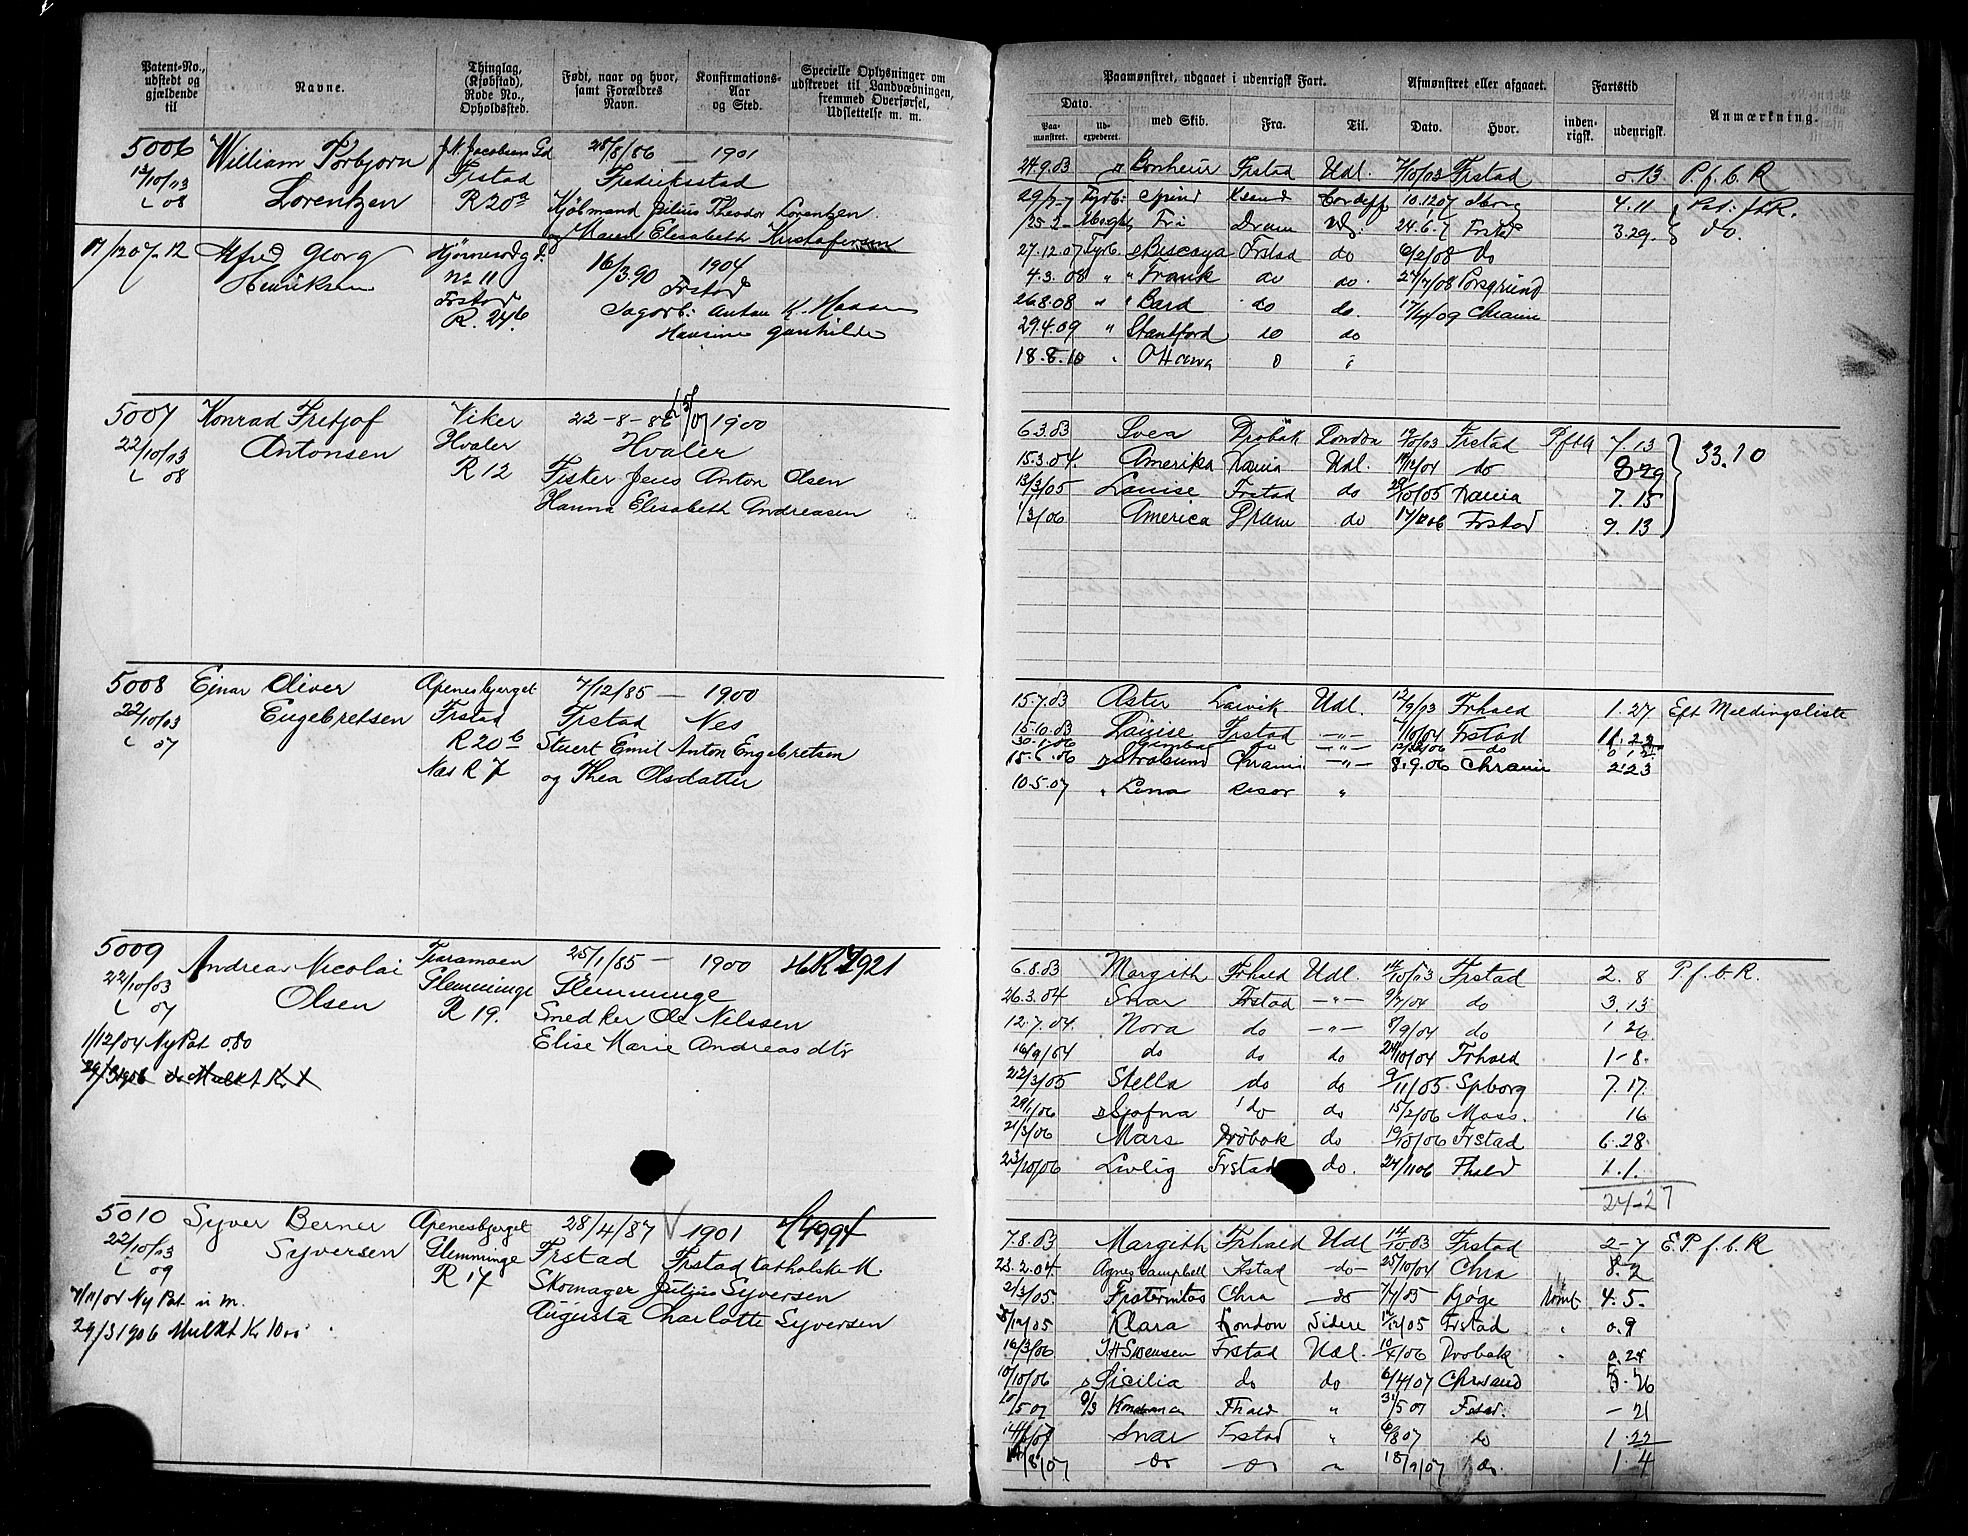 Patent-No., udstedt og gjældende til
Navne.
Thinglag, (Kjøbstad), Rode No., Opholdssted.
Født, naar og hvor, samt Forældres Navn.
Konfirmations-Aar og Sted.
Specielle Oplysninger om udskrevet til Landværbningen, fremmed Overførsel, Udslettelse m. m.
5006 William Torbjørn J. N. Jacobsens Gd 25/8/86 — 1901
12/10/03 Lorentzen Frstad Fredriksstad
L 08 R 20 Kjøbmand Julius Theodor Lorentzen
og Maren Elisabeth Gustafersen
17/12 07. 12 Alfred Georg 16/3.90 1904
Henriksen No 11 Frstad
Frstad Anton K. Hansen
R. 24 b. Hansine Gunhilde
5007 Konrad Fretjof Viker 22-8-86 1900
22/10/03 Antonsen Hvaler Hvaler
L 08 R 12 Fisker Jens Anton Olsen
Hanna Elisabeth Andreasen
5008 Ejnar Oliver Apenesbjerget 7/12/85 — 1900
22/10/03 Engebretsen Frstad Frstad Nes
L 07 R 20 b Stuert Emil Anton Engebretsen
Næs R 7 og Thea Olsdatter
5009 Andreas Nicolai Taramoen 25/1/85 — 1900
22/10/03 Olsen Glemminge Glemminge
L 07 R 19. Smed Ker Ole Nelssen
1/12/04 Ny Pat 0,80 Elise Marie Andreasdtr
29/3 1906 do Mulkt Kr
5010 Syver Berner Apenesbjerget 28/4/87 1901
22/10/03 Syversen Glemminge Frstad Frstad katholske M.
L 09 R 17 Skomager Julius Syversen
7/11/04 Ny Pat Augusta Charlotte Syversen
29/3 1906 Mulkt Kr 10
Paamønstret, udgaaet i udenrigsk Fart.
Afmønstret eller afgaaet.
Fartstid
Anmærkning.
Dato.
Paamønstret.
Udexpederet.
med Skib.
Fra.
Til.
Dato.
Hvor.
indenrigsk.
udenrigsk.
24.9.03 Bonheur Frstad Udl. 7/10/03 Frstad 0.13 P. f. b. R
29/7-7 Spind Cardiff 10.12 07 4.11
25.2- Fri Dram Udl. 24.6.7 Frstad 3.29. do.
27.12.07 Biscaya Frstad do 6/2/08 do
4.3.08 " " Frank do do. 27/7/08 Porsgrund
26.8.08 " " Bard do do. 17/4/09 Chrania
29.4.09 " Stantford do do
18.8.10 Ottawa
6.3.03 Svea Drøbak London Frstad 7.13
15.3.04. Amerika Udl. do 8.29 33.10
13/3/05 Louise Frstad do 29/10/05 7.15
1/3/06 America Dram do 17/12 06 Frstad 9.13
15.7.03 Aster Larvik Udl. 12/9/03 Frhald 1.27 Eft Meldingsliste
15.10.03 Louise Frstad -"- 7/10/04 Frstad 11.22
30.1.06 do -"- do
15.6.06 Stralsund Chrania -"- 8.9.06 Chrania 2.23
10.5.07 " Lena Risør "
6.8.03 Margith Frhald Udl. 14/10/03 Frstad 2.8 P. f. b. R.
26.3.04 Snar Frstad -"- 9/7/04 do 3.13
12.7.04. Nora do -"- 8/9/04 do 1 26
16/9/04 do do do 24/10/04 Frhald 1-8.
22/3/05 Stella do do 9/11/05 Spborg 7.17.
29/1/06 Sjofna do do 15/2/06 Moss. 16
21/3/06 Mars Drøbak do 19/10/06 Frstad 6.28
23/10/06 Livlig Frstad do. 24/11 06 Fhald 1.1.
24-27
7.8.03 Margith Frhald Udl 14/10 03 Frstad 2-7 E. P. f. b. R
23.2.04. Agnes Campbell Frstad -do- 25/10/04 Chra 8.2
2/3/05. Fraternitas Chra do 7/7/05 Kjøge 4.5.
8/12/05 Klara London 12/12/05 Frstad 0.9
16/3/06 J H Svensen Frstad Udl. 10/4/06 Drøbak 0.24
10/10/06 Sicilia do do 6/4/07 Chrsand 5.26
10/5 07 Fhald " 31/5 07 Frstad. - 21
14/6/07 Snar Frstad " 6/8 07 do 1.22
14/8/07 do do " 18/9/07 do. 1.4